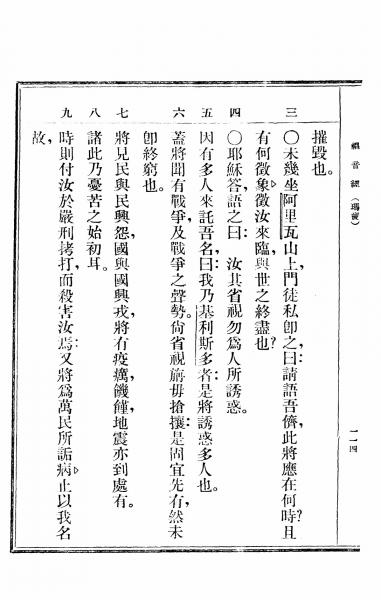 福音經（瑪竇）
一一四
摧毀也。
三 〇未幾坐阿里瓦山上，門徒私卽之曰：請語吾儕，此將應在何時？且
有何徵象徵汝來臨，與世之終盡也？
四 〇耶穌答，語之曰：汝其省視勿爲人所誘惑。
五 因有多人來託吾名，曰：我乃基利斯多者：是將誘惑多人也。
六 蓋將聞有戰爭，及戰爭之聲勢。尙省視旃毋搶攘：是固宜先有，然未
卽終窮也。
七 將見民與民興怨，國與國興戎，將有疫癘，饑饉，地震亦到處有。
八 諸此乃憂苦之始初耳。
九 時則付汝於嚴刑拷打，而殺害汝焉：又將爲萬民所詬病，止以我名
故，